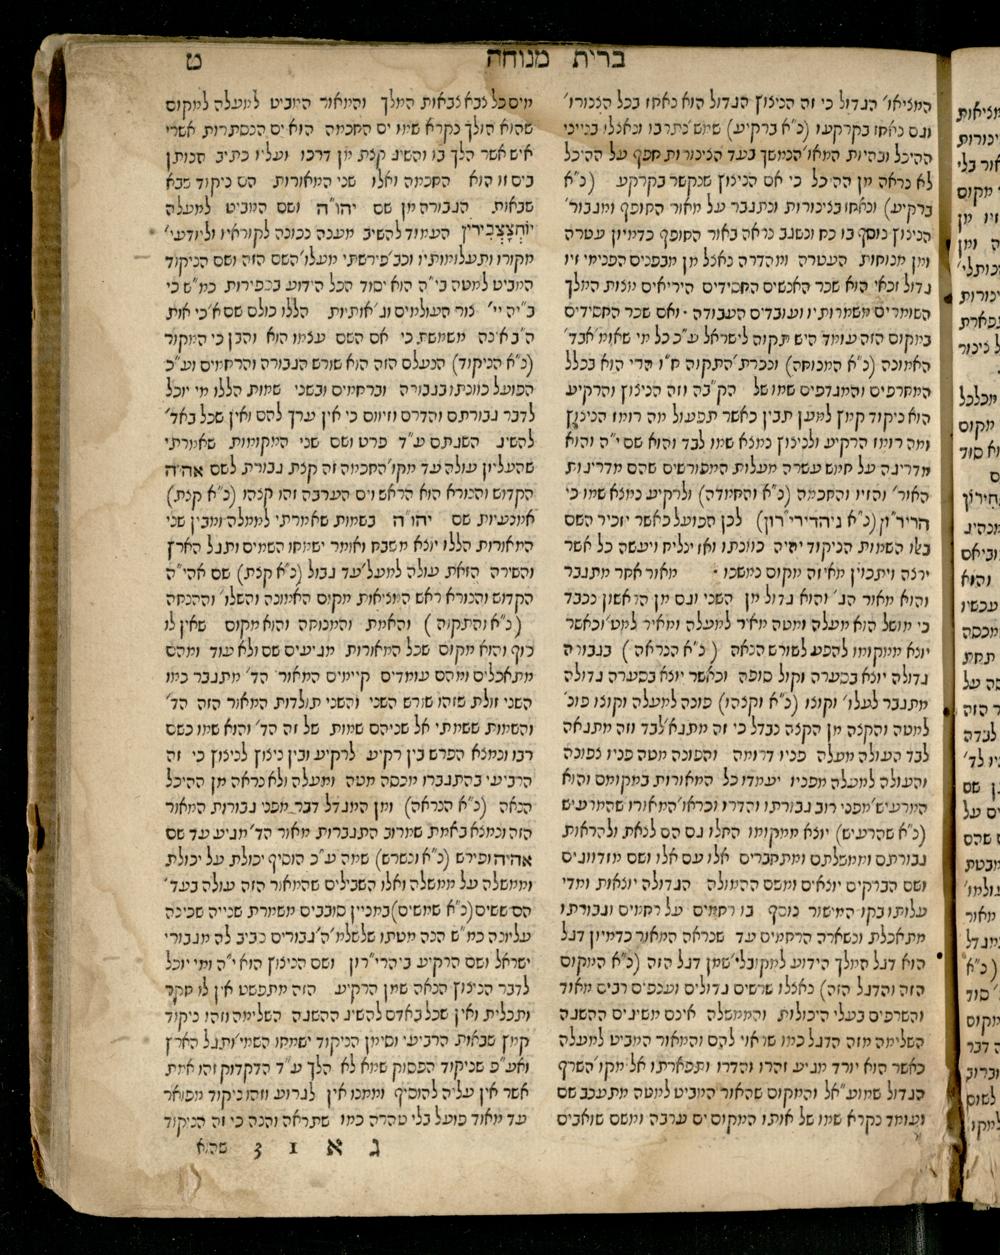 ברית מנוחה
ט
המציאו' הגדול כי זה הניצוץ הגדול הוא נאחז בכל הנזכורו'
וגם נאחז בקרקעו (נ"א ברקיע) שמש כתרבו ונאצלו בנייני
ההיכל ובהיות המאו' הנמשך בעד הניכורות חפף על ההיכל
לא נראה מן ההיכל כי אם הניצוץ שנקשר בקרקע (נ"א
ברקיע) ונאחז בניכורות ונתגבר על מאור החופף ומגבור'
הניצוץ נוסף בו כח ונשגב נראה באור החופף כדמיון עטרה
ומן מנוחות העטרה ומהדרה נאצל מן מבפנים הפנימי זיו
גדול וזכאי הוא שכר האנשים החסידים היריאים מצות המלך
השומרים משמרותיו ועובדים העבודה ואם שכר החסידים
במקום הזה עומד היש תקוה לישראל ע"כ כל מי שאומ' אבד'
האמונה (נ"א המנוחה) ונכרת' התקוה ח"ו הרי הוא בכלל
המחרפים והמגדפים שמו של הק"בה וזה הניצוץ והרקיע
הוא ניקוד קמץ למען תבין כאשר תפעול מה רומז הניצוץ
ומה רומז הרקיע ולניצוץ נמצא שמו לבד והוא שם י"ה והוא
מדריגה על חמש עשרה מעלות המפורשים שהם מדריגות
האור' והזיו והחכמה (נ"א והחמדה) ולרקיע נמצא שמו כי
הריר"ון (נ"א ניהדירי"רון) לכן הפועל כאשר יזכיר השם
בצו השמות הניקוד יהיה כוונתו ואז יצליח ויעשה כל אשר
ירצה ויתכוין מאיזה מקום נמשכו מאור אחר מתגבר
והוא מאור הג' והוא גדול מן השני וגם מן הראשון נכבד
כי מושל הוא מעלה ומטה מאיר למעלה ומאיר למט' וכאשר
יוצא ממקומו להפע לשורש הנאה (נ"א הנראה) בגבורה
גדולה יוצא בסערה וקול סופה וכאשר יוצא בסערה גדולה
מתגבר לעלו' וקוצו (נ"א וקצהו) פונה למעלה וקוצו פונ'
למטה והקצה מן הקצה נבדל כי זה מתנא' לבד וזה מתנאה
לבד העולה מעלה פניו דרומה והפונה מטה פניו צפונה
והעולה למעלה מפניו יעמדו כל המאורות במקומם והוא
המרעיש' מפני רוב גבורתו והדרו וכראו' המאורו שהמרעיש
(נ"א שהרעיש) יוצא ממקומו החלו גם הם לצאת ולהראות
גבורתם וממשלתם ומתחברים אלו עם אלו ושם מזדווגים
ושם הברקים יוצאים ומשם ההמולה הגדולה יוצאות ומדי
עלותו בקו המישור נוסף בו רחמים על רחמים וגבורתו
מתאכלת ונשארה הרחמים עד שנראה המאור כדמיון דגל
הוא דגל המלך הידוע למקובלי' שמן דגל הזה (נ"א המקום
הזה והדגל הזה) נאצלו שרשים גדולים וענפים רבים מאוד
והשרפים בעלי היכולות והממשלה אינם משיגים ההשגה
השלימה מזה הדגל כמו שראוי להם והמאור המביט למעלה
כאשר הוא יורד מגיע זהרו והדרו ותפארתו אל מקו' השרף
הגדול שמוע"אל והמקום שהאור המביט למטה מתעכב שם
ועומד נקרא שמו של אותו המקום ים ערבה ומשם שואבים
מים כל צבא צבאות המלך והמאור המביט למעלה למקום
שהוא הולך נקרא שמו ים החכמה הוא ים הנסתרות אשרי
איש אשר הלך בו והשיג קצת מן דרכו ועליו כתיב חכותן
בים זו הוא החכמה ואלו שני המאורות הם ניקוד שבא
שבאות הגבורה מן שם יהו"ה ושם המביט למעלה
יוחצצבירין העמוד להשיב מענה נכונה לקוראיו וליודעי'
מקורו ותעלומותיו וכב' פירשתי מעלו' השם הזה ושם הניקוד
המביט למטה בי"ה הוא יסוד הכל הידוע בספירות כמ"ש כי
ב"יה יי' צור העולמים וג' אותיות הללו כולם שם א' כי אות
ה"בא' ינה משמשת כי אם השם עצמו הוא והבן כי המקור
(נ"א הניקוד) הנעלם הזה הוא שורש הגבורה והרחמים וע"כ
הפועל כוונתו בגבורה וברחמים ובשני שמות הללו מי יוכל
לדבר גבורתם והדרם וזיוום כי אין ערך להם ואין שכל באד'
להשיג השגתם ע"ד פרט ושם שני המקומות שאמרתי
שהעליון עולה עד מקו' החכמה זה קצת גבורת לשם אהיה
הקדוש והנורא הוא הראש וים הערבה זהו קצהו (נ"א קצת)
אמצעיות שם יהו"ה בשמות שאמרתי לממלה ומבין שני
המאורות הללו יוצא משבח ואומר ישמחו השמים ותגל הארץ
והשירה הזאת עולה למעל' עד גבול (נ"א קצת) שם אהי"ה
הקדוש והנורא ראש המציאות מקום האמונה והשלו' וההנחה
(נ"א והתקוה) והאמת והמנוחה והוא מקום שאין לו
סוף והוא מקום שכל המאורות מגיעים שם ולא עוד ומהם
מתאכלים ומהם עומדים קיימים המאור הד' מתגבר כמו
השני זולת שזהו שורש השני והשני תולדות המאור הזה הד'
והשמות ששמתי אל שניהם שמות של זה הד' והוא שמו כשם
רבו ונמצא הפרש בין רקיע לרקיע ובין ניצוץ לניצוץ כי זה
הרביעי בהתגברו מכסה מטה ומעלה ולא נראה מן ההיכל
הנאה (נ"א הנראה) ומן המגדל דבר מפני גבורות המאור
הזה ונמצא באמת שמרוב התגברות מאור הד' מגיע עד שם
אהיה ופירש (נ"א ונשרש) שמה ע"כ הוסיף יכולת על יכולת
וממשלה על ממשלה ואלו השבילים שהמאור הזה עולה בעד'
הם ששים (נ"א שמשים) במניין סובבים משמרת שנייה שכינה
עליונה כמ"ש הנה מטתו שלשלמ' ה' גבורים סביב לה מגבורי
ישראל ושם הרקיע ביהרי"רון ושם הניצוץ הוא י"ה ומי יוכל
לדבר הניצוץ הנאה שמן הרקיע הזה מתפשט אין לו חקר
ותכלית ואין שכל באדם להשיג ההשגה השלימה וזהו ניקוד
קמץ שבאות הרביעי וסימן הניקוד ישמחו השמי' ותגל הארץ
ואע"פ שניקוד הפסוק שמא לא הלך ע"ד הדקדוק זהו אמת
אשר אין עליה להוסיף וממנו אין לגרוע וזהו ניקוד מפואר
עד מאוד פועל בלי טהרה כמו שתראה והנה כי זה הניקוד
ג א 1 3 שהוא